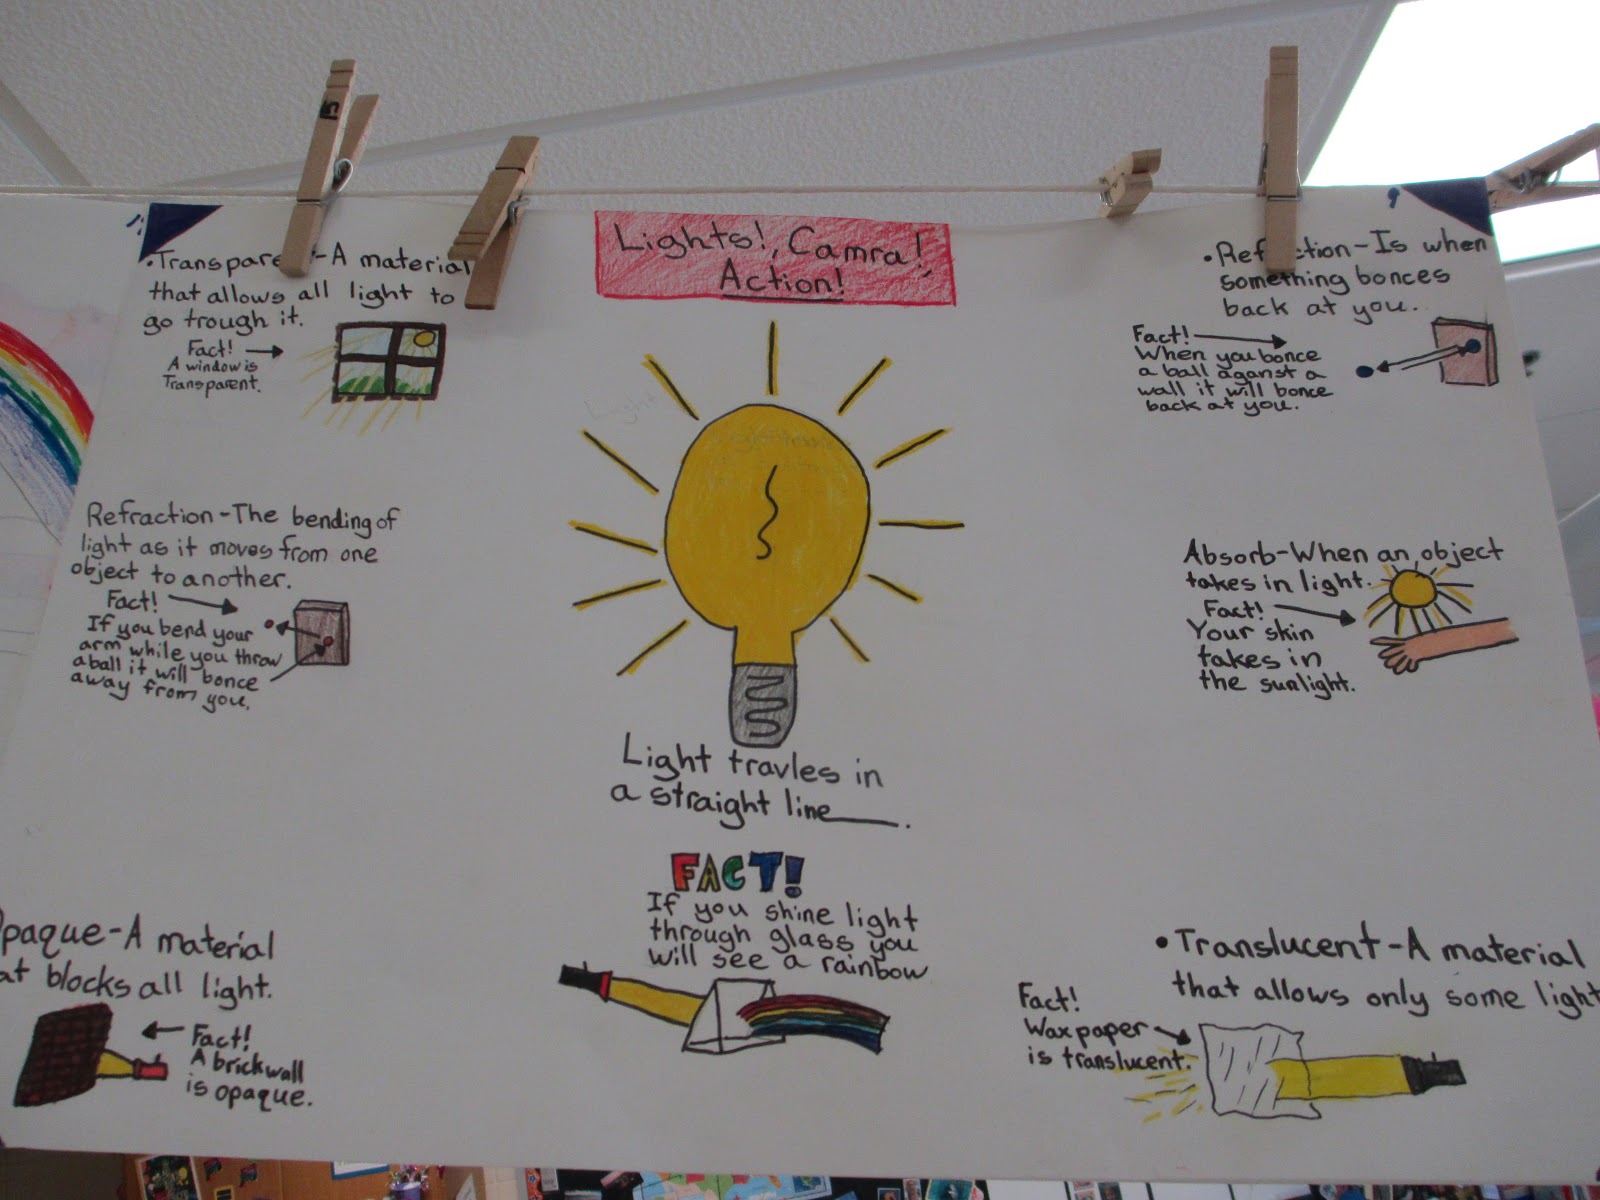 Lights!, Camra!,
Action!
•Transpare-A material
that allows all light to
go trough it.
Fact!
A window is
Transparent.
Refraction-The bending of
light as it moves from one
object to another.
Fact!
If you bend your
arm while you throw
a ball it will bonce
away from you.
paque-A material
at blocks all light.
Fact!
A brick wall
is opaque.
Light travles in
a straight line.
FACT!
If you shine light
through glass you
will see a rainbow
•Refction-Is when
something bonces
back at you.
Fact!
When you bonce
a ball aganst a
wall it will bonce
back at you.
Absorb-When an object
takes in light.
Fact!
Your skin
takes in
the sunlight.
•Translucent-A material
that allows only some light
Fact!
Wax paper
is translucent.